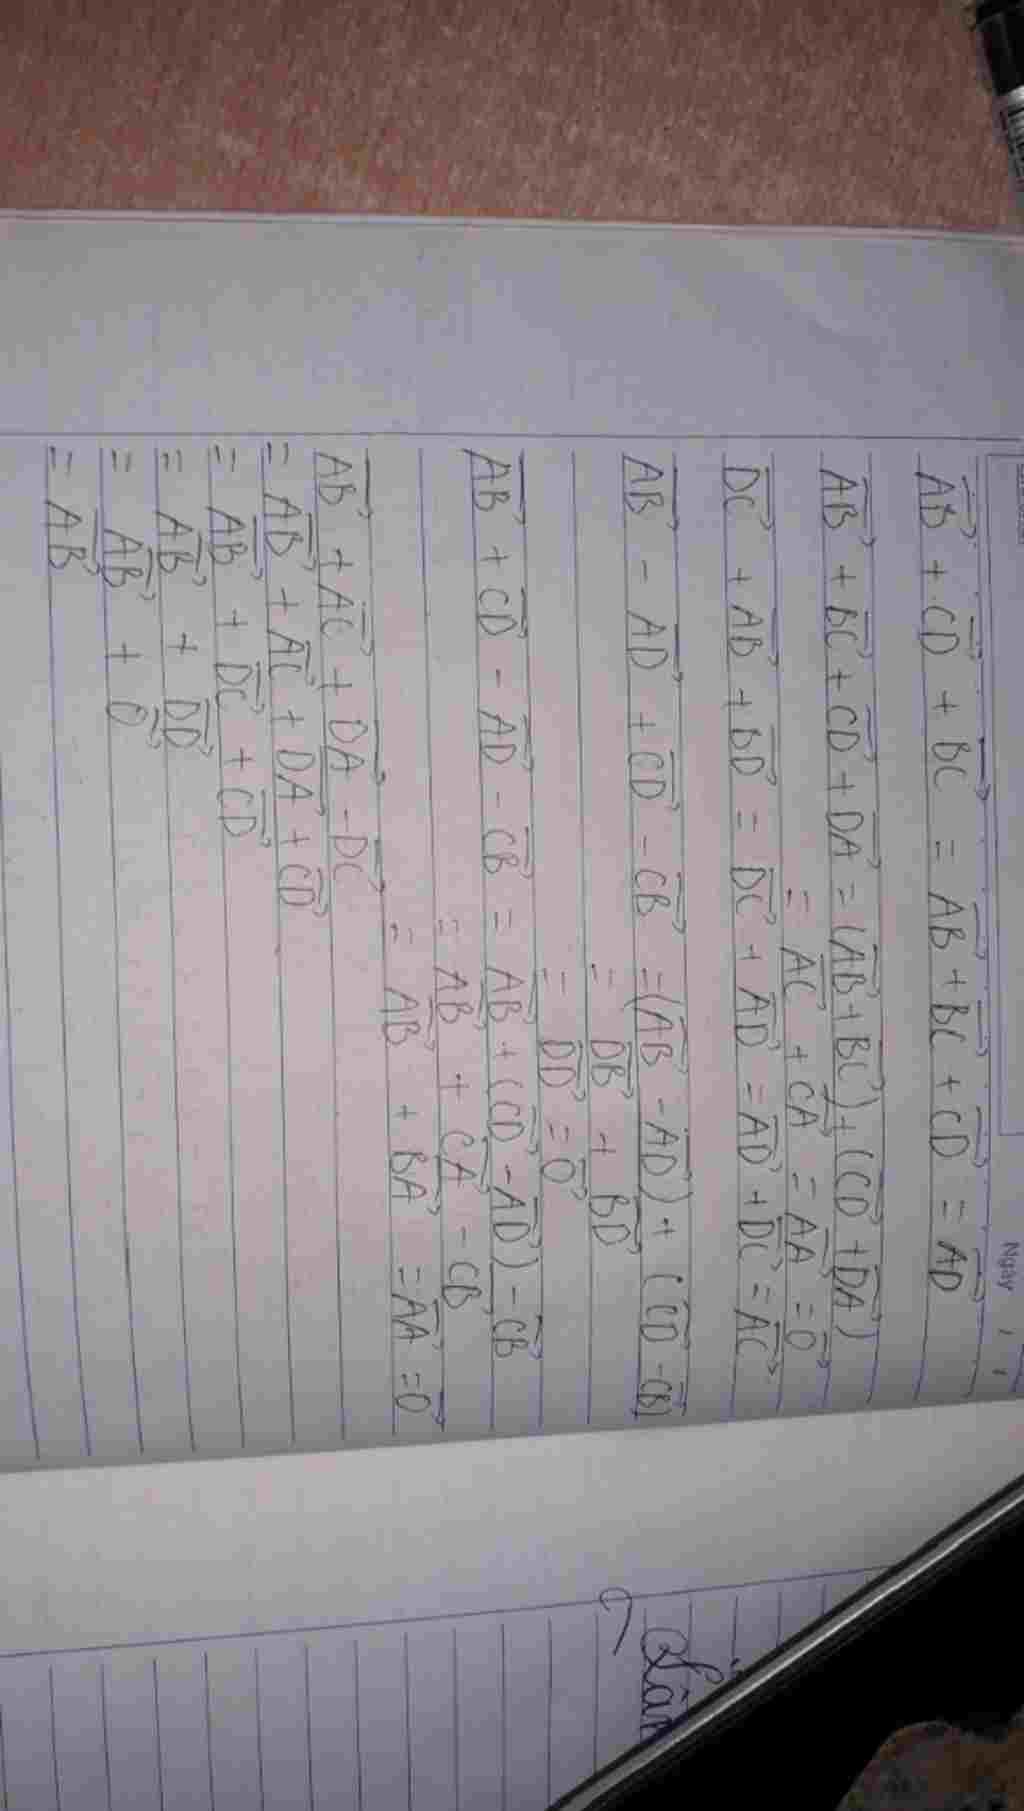 Ngày / /
AB + CD + BC = AB + BC + CD = AD
AB + BC + CD + DA = (AB + BC) + (CD + DA)
= AC + CA = AA = O
DC + AB + BD = DC + AD = AD + DC = AC
AB - AD + CD - CB = (AB - AD) + (CD - CB)
= DB + BD
= DD = O
AB + CD - AD - CB = AB + (CD - AD) - CB
= AB + CA - CB
= AB + BA = AA = O
AB + AC + DA - DC
= AB + AC + DA + CD
= AB + DC + CD
= AB + DD
= AB + O
= AB